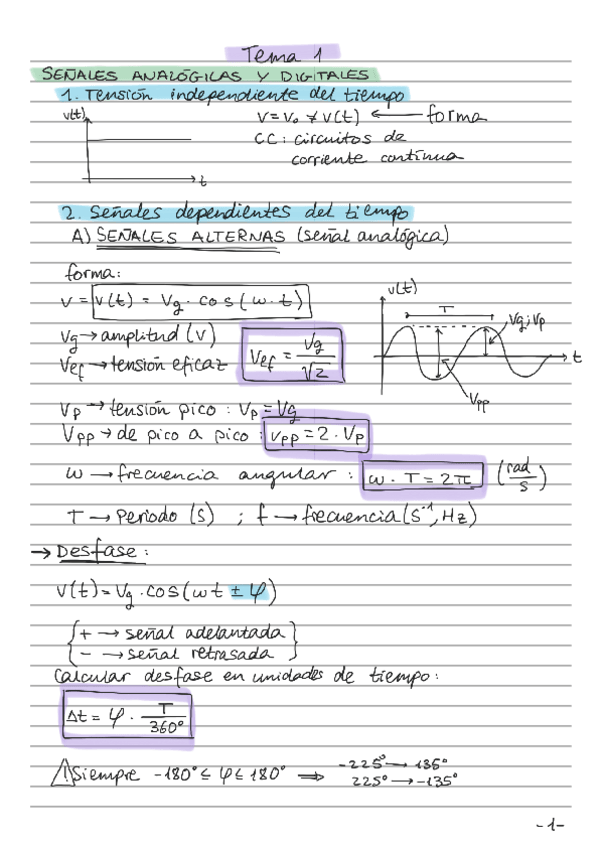 Tema 1
SEÑALES ANALÓGICAS Y DIGITALES
1. Tensión independiente del tiempo
v(t)
v = v₀ ≠ v(t) ← forma
CC: circuitos de
corriente contínua
t
2. Señales dependientes del tiempo
A) SEÑALES ALTERNAS (señal analógica)
forma:
v = v(t) = Vg · cos (ω · t)
v(t)
T
Vg; Vp
t
Vpp
Vg → amplitud (V)
Vef → tensión eficaz
Vef = Vg / √2
Vp → tensión pico : Vp = Vg
Vpp → de pico a pico : Vpp = 2 · Vp
ω → frecuencia angular : ω · T = 2π (rad/s)
T → Periodo (s) ; f → frecuencia (s⁻¹, Hz)
→ Desfase :
v(t) = Vg · cos (ωt ± φ)
+ → señal adelantada
− → señal retrasada
Calcular desfase en unidades de tiempo:
Δt = φ · T / 360°
⚠ Siempre -180° ≤ φ ≤ 180° ⇒ -225° → 135°
225° → -135°
-1-